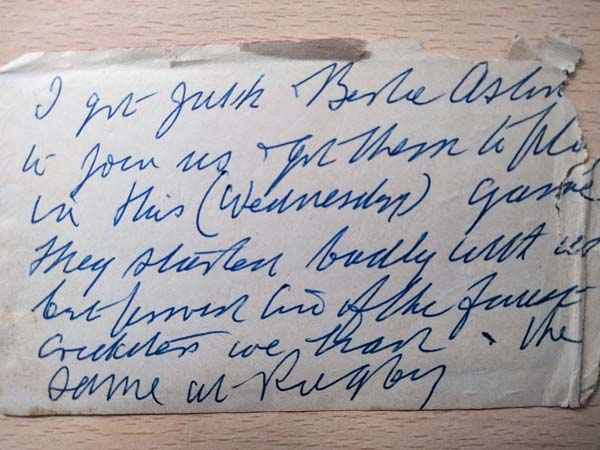 I got Bertie
to join us & got them to
in this (Wednesday) game
they started badly with us
but proved two of the finest
cricketers we had & the
same at Rugby